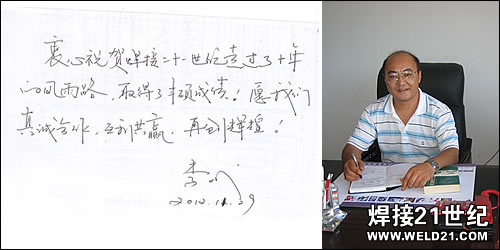 衷心祝贺焊接二十一世纪走过了十年
的风雨路，取得了丰硕成绩！愿我们
真诚合作，互利共赢，再创辉煌！
2010.11.29
焊接21世纪
WWW.WELD21.COM